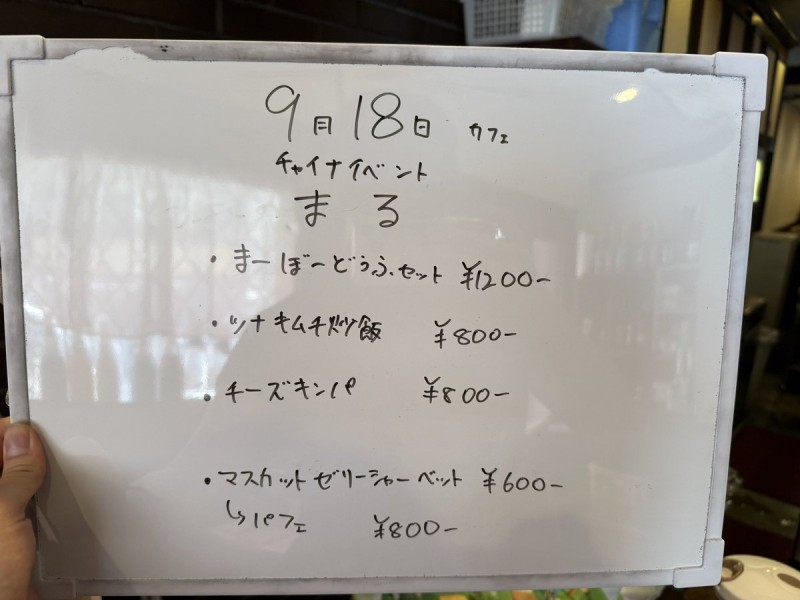 9月18日 カフェ
チャイナイベント
まる
・まーぼーどうふセット ¥1200-
・ツナキムチ炒飯 ¥800-
・チーズキンパ ¥800-
・マスカットゼリーシャーベット ¥600-
↳パフェ ¥800-